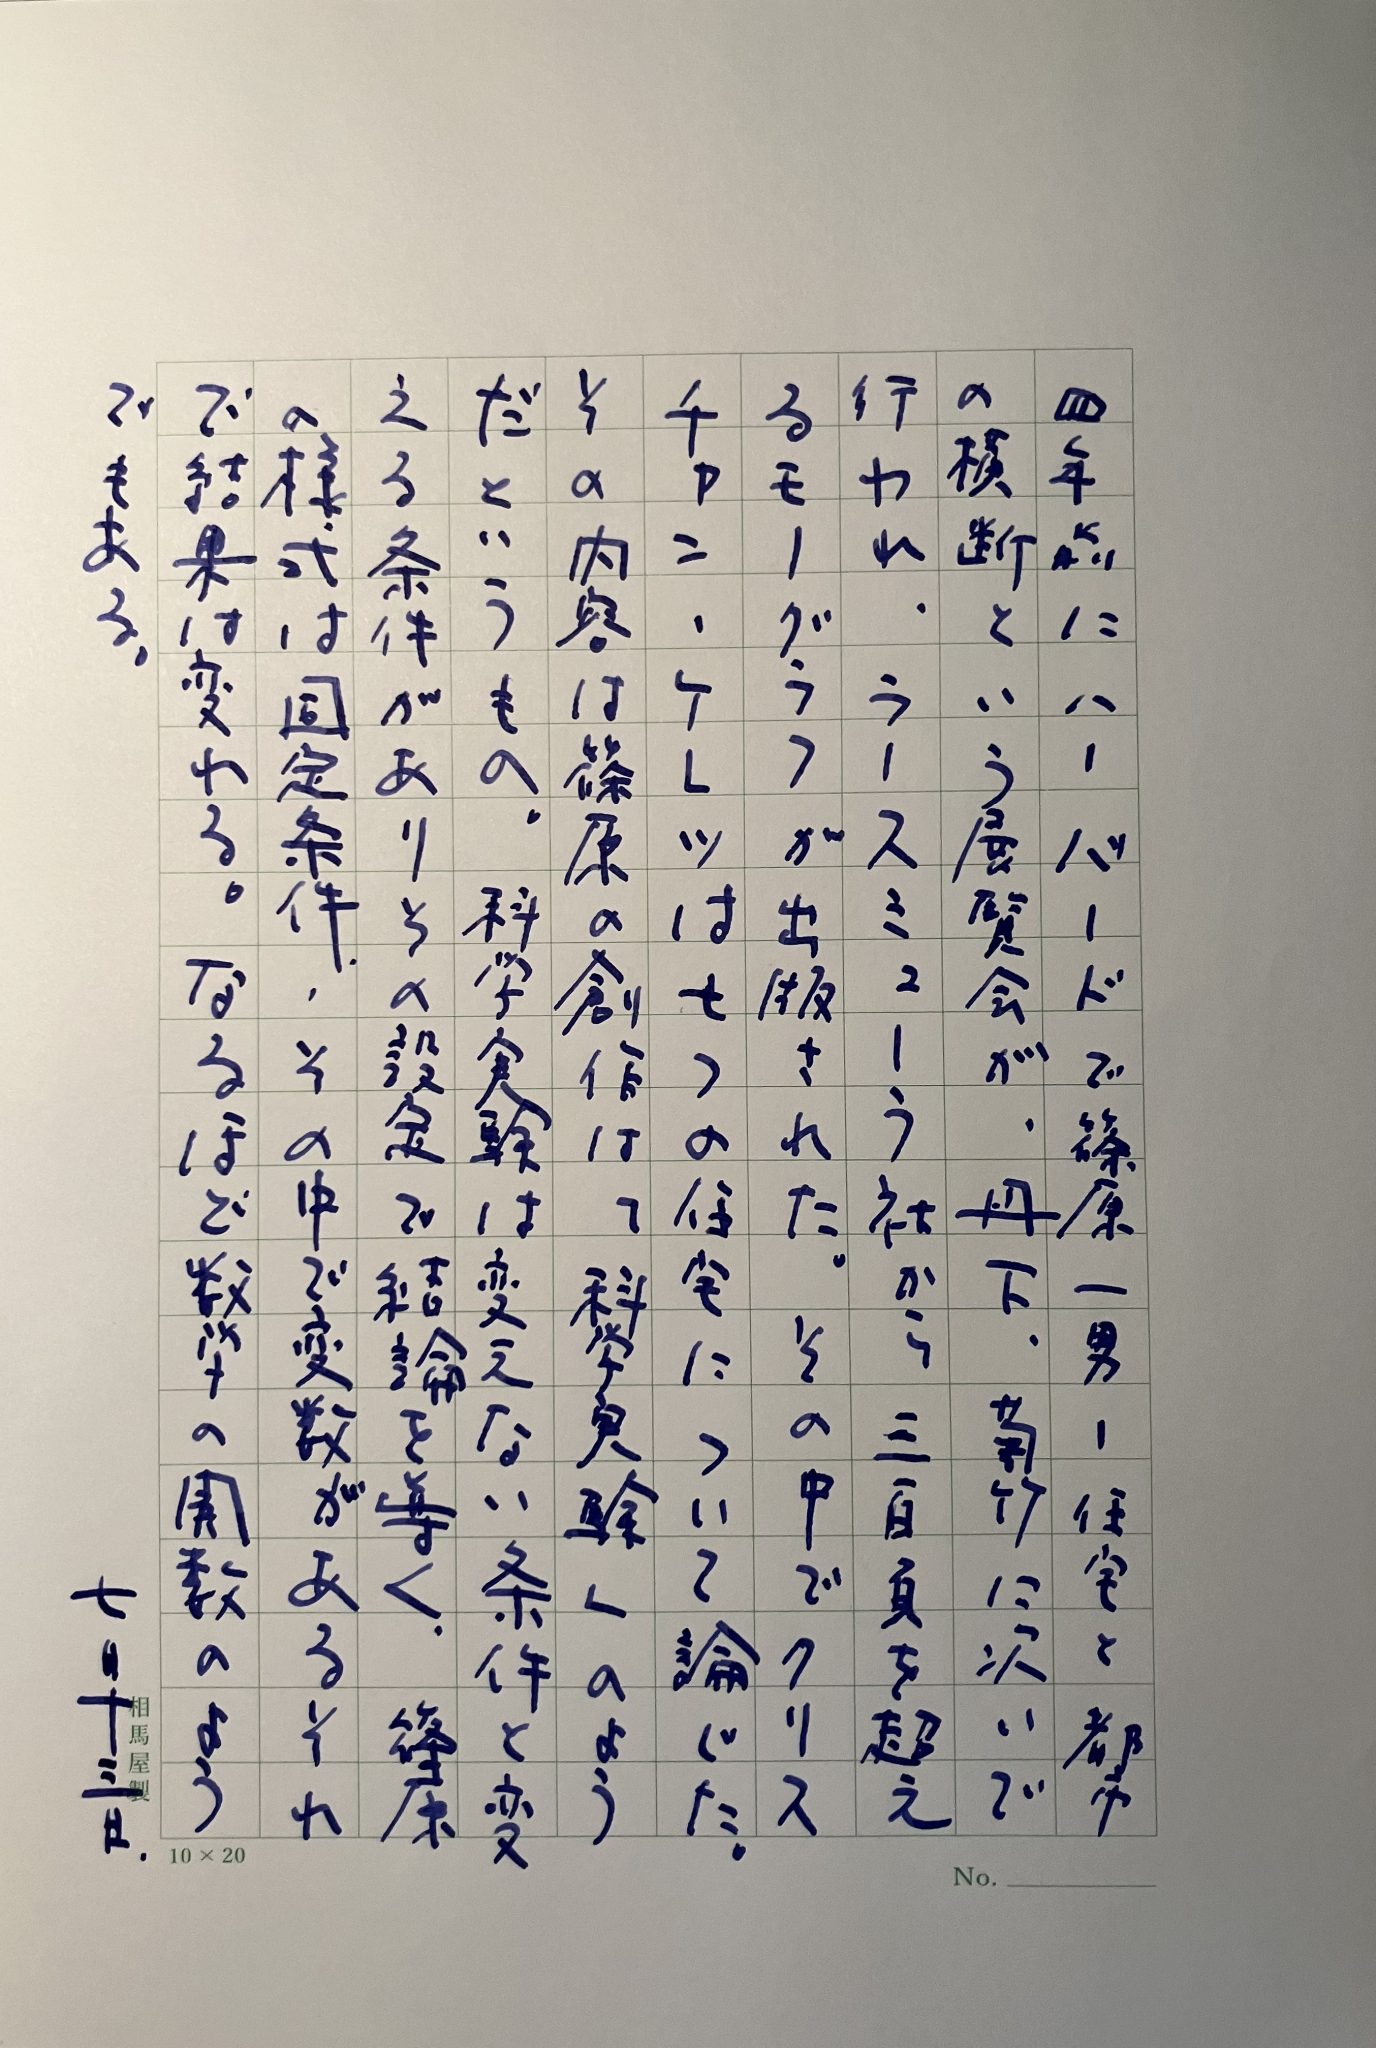 四年点にハーバードで篠原一男ー住宅と都市
の横断という展覧会が、丹下、菊竹に次いで
行われ、ラースミュラー社から三百頁を超え
るモーグラフが出版された。その中でクリス
チャン・ケレツは七つの住宅について論じた。
その内容は篠原の創作はて科学実験しのよう
だというもの。科学実験は変えない条件と変
える条件がありその設定で結論を導く。篠原
の様式は固定条件、その中で変数があるそれ
で結果は変わる。なるほど数学の関数のよう
でもある。
七月十三日.
相馬屋製
10×20
No.